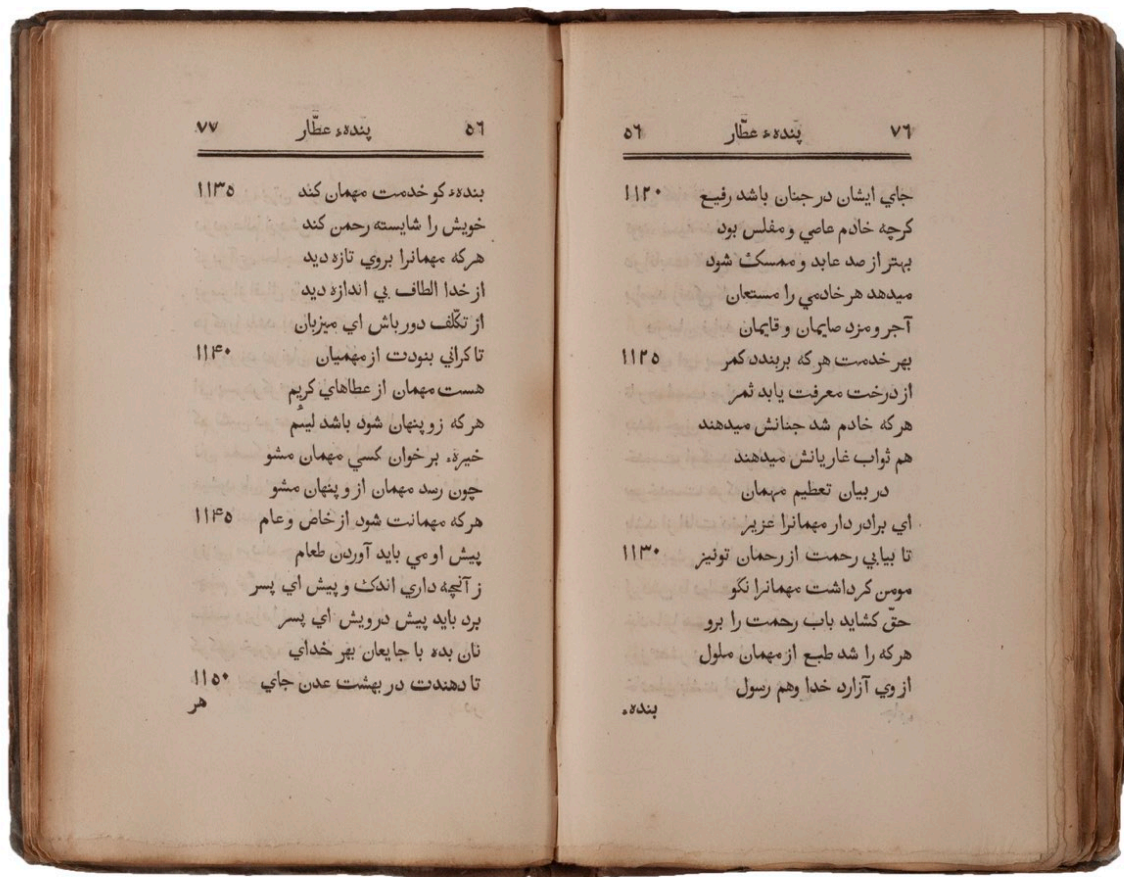 ٧٦ پنده عطّار ٥٦
جاي ايشان در جنان باشد رفيع ١١٢٠
كرچه خادم عاصي و مفلس بود
بهتر از صد عابد و ممسك شود
ميدهد هر خادمي را مستعان
آجر و مزد صايمان و قايمان
بهر خدمت هر كه بربندد كمر ١١٢٥
از درخت معرفت يابد ثمر
هر كه خادم شد جنانش ميدهند
هم ثواب غازيانش ميدهند
در بيان تعظيم مهمان
اي برادر دار مهمانرا عزيز
تا بيابي رحمت از رحمان تونيز ١١٣٠
مومن كرداشت مهمانرا نگو
حقّ كشايد باب رحمت را برو
هر كه را شد طبع از مهمان ملول
از وي آزارد خدا وهم رسول
بنده
٥٦ پنده عطّار ٧٧
بندهء كو خدمت مهمان كند ١١٣٥
خويش را شايسته رحمن كند
هر كه مهمانرا بروي تازه ديد
از خدا الطاف بي اندازه ديد
از تكلّف دور باش اي ميزبان
تا كراني بنودت از مهميان ١١۴٠
هست مهمان از عطاهاي كريم
هر كه زو پنهان شود باشد لئيم
خيره بر خوان كسي مهمان مشو
چون رسد مهمان ازو پنهان مشو
هر كه مهمانت شود از خاص وعام ١١۴٥
پيش او مي بايد آوردن طعام
ز آنچه داري اندك و پيش اي پسر
برد بايد پيش درويش اي پسر
نان بده با جايعان بهر خداي
تا دهندت در بهشت عدن جاي ١١٥٠
هر